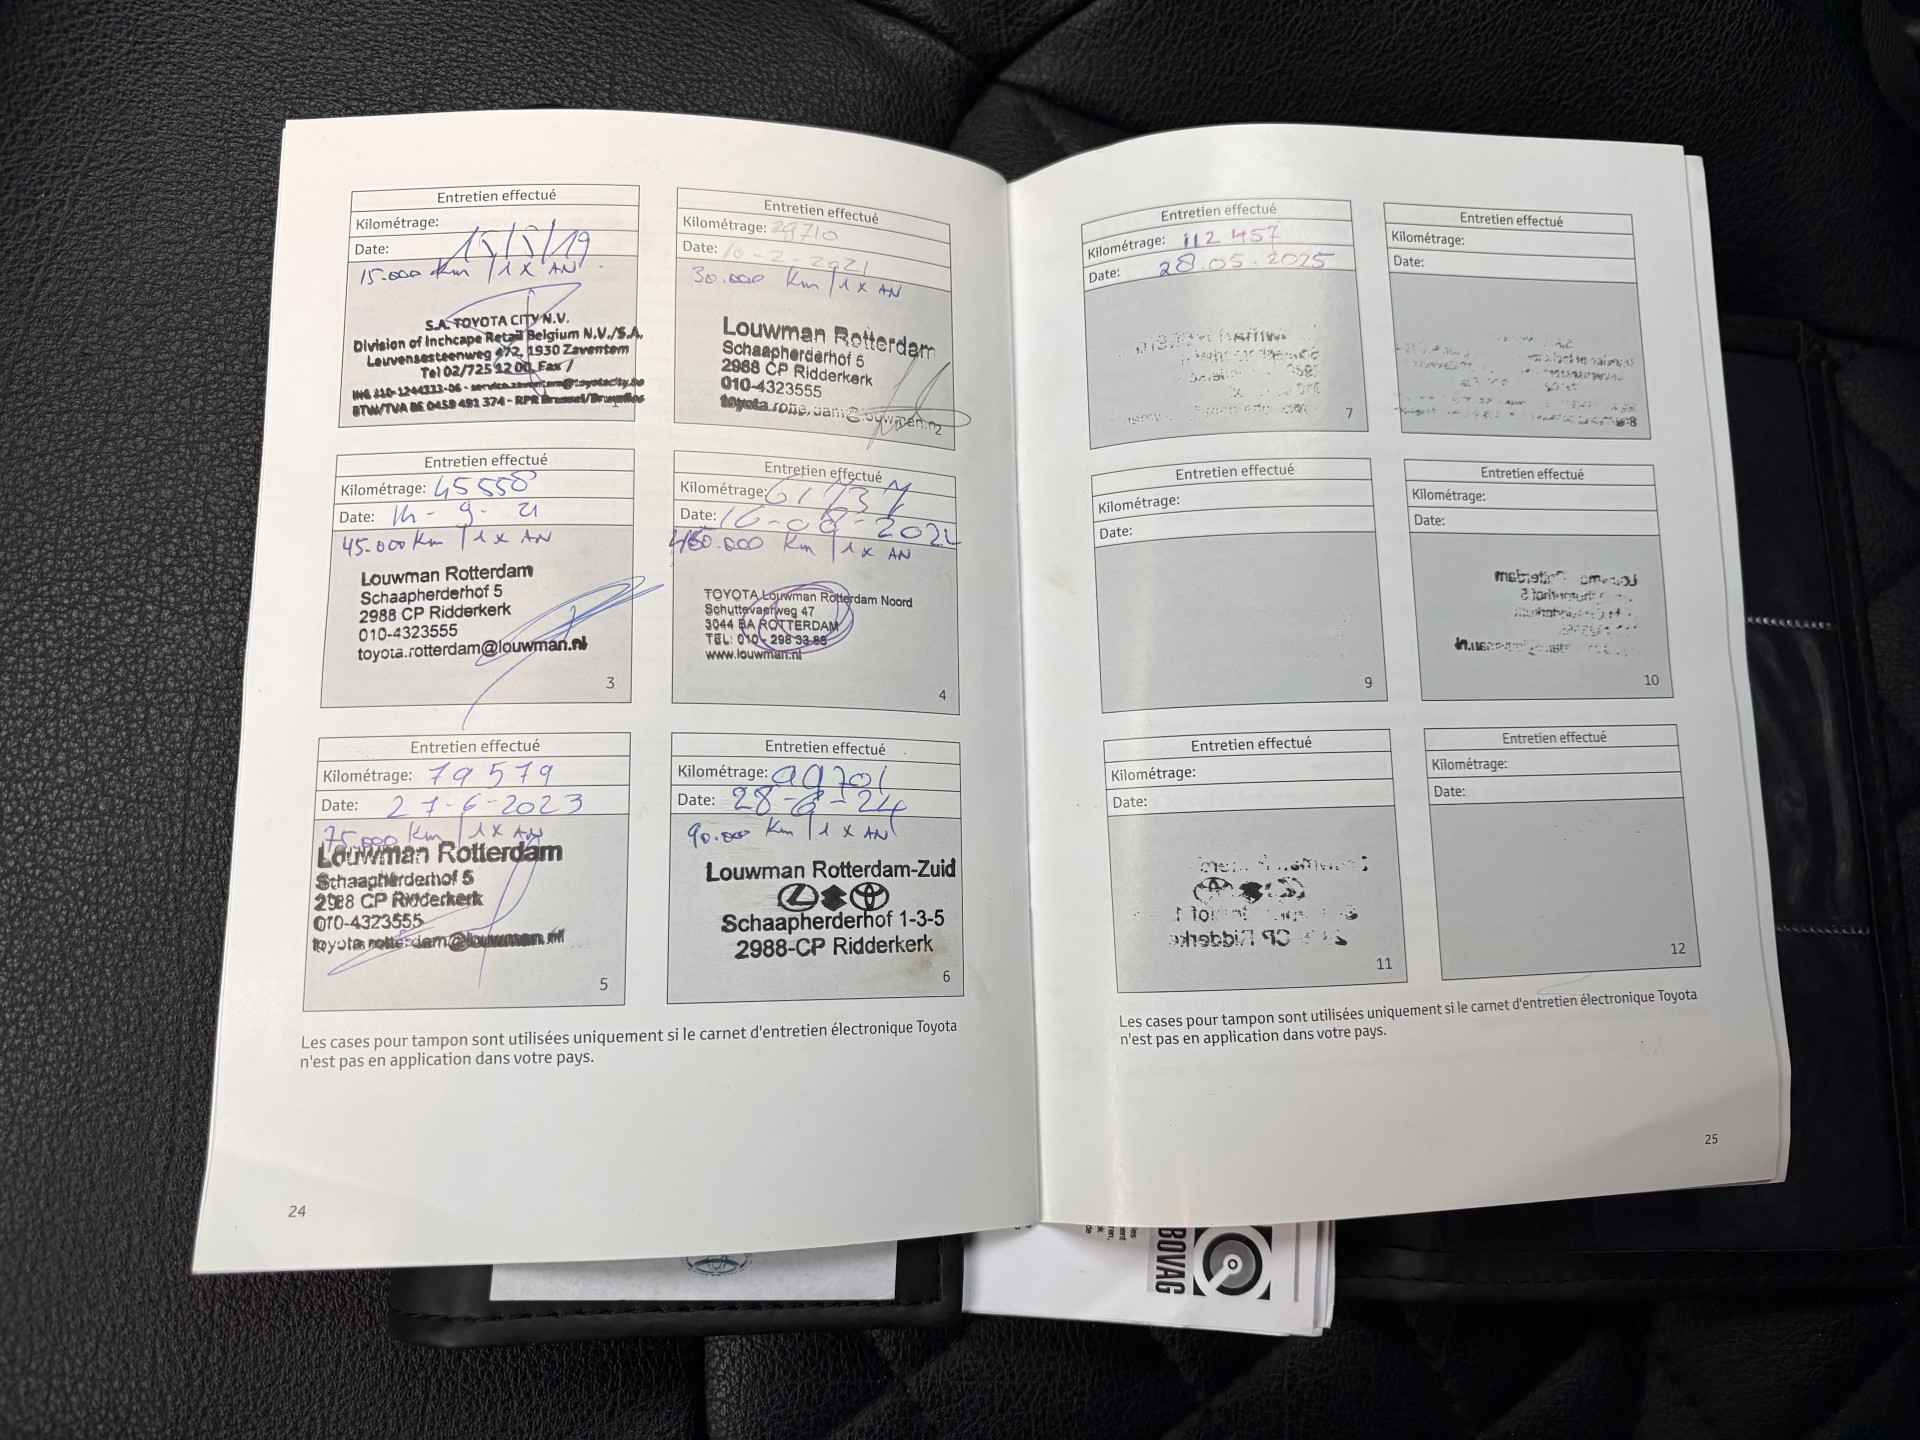 Entretien effectué
Kilométrage:
Date: 15/5/19
15.000 Km / 1 x AN
S.A. TOYOTA CITY N.V.
Division of Inchcape Retail Belgium N.V./S.A.
Leuvensesteenweg 472, 1930 Zaventem
Tel 02/725 12 00 Fax /
BTW/TVA BE 0458 491 374 - RPR Brussel/Bruxelles
Entretien effectué
Kilométrage: 29710
Date: 10-2-2021
30.000 Km / 1 x AN
Louwman Rotterdam
Schaapherderhof 5
2988 CP Ridderkerk
010-4323555
toyota.rotterdam@louwman.nl
2
Entretien effectué
Kilométrage: 45558
Date: 14-9-21
45.000 Km / 1 x AN
Louwman Rotterdam
Schaapherderhof 5
2988 CP Ridderkerk
010-4323555
toyota.rotterdam@louwman.nl
3
Entretien effectué
Kilométrage:
Date:
Km / 1 x AN
TOYOTA Louwman Rotterdam Noord
Schuttevaerweg 47
3044 BA ROTTERDAM
TEL: 010 - 298 33 88
www.louwman.nl
4
Entretien effectué
Kilométrage: 79579
Date: 27-6-2023
75.000 Km / 1 x AN
Louwman Rotterdam
Schaapherderhof 5
2988 CP Ridderkerk
010-4323555
toyota.rotterdam@louwman.nl
5
Entretien effectué
Kilométrage: 99701
Date: 28-6-24
90.000 Km / 1 x AN
Louwman Rotterdam-Zuid
Schaapherderhof 1-3-5
2988-CP Ridderkerk
6
Les cases pour tampon sont utilisées uniquement si le carnet d'entretien électronique Toyota
n'est pas en application dans votre pays.
24
Entretien effectué
Kilométrage: 112 457
Date: 28.05.2025
7
Entretien effectué
Kilométrage:
Date:
8
Entretien effectué
Kilométrage:
Date:
9
Entretien effectué
Kilométrage:
Date:
10
Entretien effectué
Kilométrage:
Date:
11
Entretien effectué
Kilométrage:
Date:
12
Les cases pour tampon sont utilisées uniquement si le carnet d'entretien électronique Toyota
n'est pas en application dans votre pays.
25
BOVAG